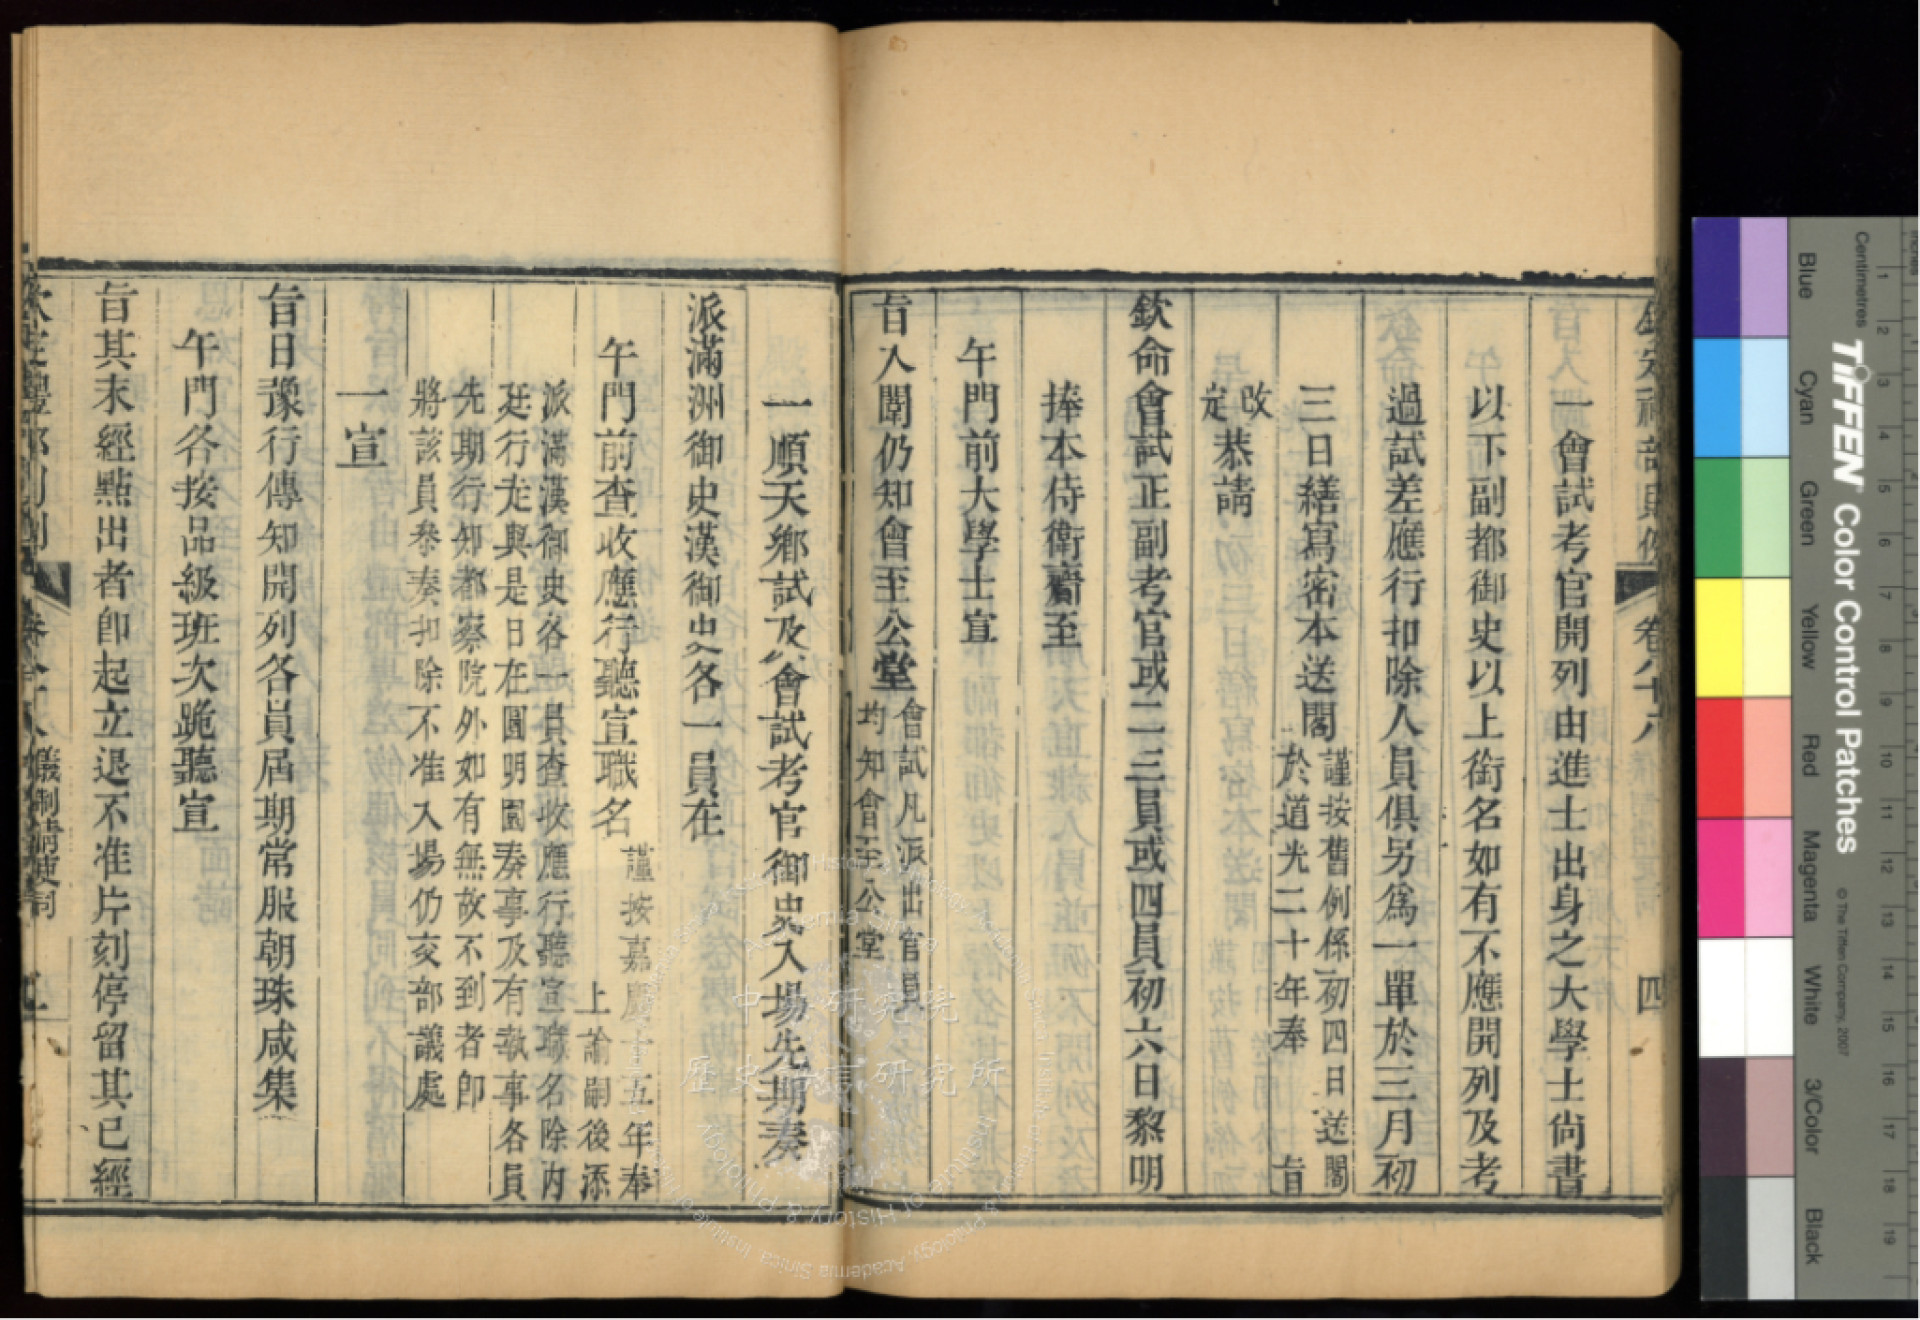 欽定禮部則例 卷八十八 四
一會試考官開列由進士出身之大學士尚書
以下副都御史以上銜名如有不應開列及考
過試差應行扣除人員俱另為一單於三月初
三日繕寫密本送閣謹按舊例係初四日送閣
於道光二十年奉 旨
改
定恭請
欽命會試正副考官或二三員或四員初六日黎明
捧本侍衛齎至
午門前大學士宣
旨入闈仍知會至公堂會試凡派出官員
均知會至公堂
一順天鄉試及會試考官御史入場先期奏
派滿洲御史漢御史各一員在
午門前查收應行聽宣職名謹按嘉慶十五年奉
上諭嗣後添
派滿漢御史各一員查收應行聽宣職名除內
廷行走與是日在圓明園奏事及有執事各員
先期行知都察院外如有無故不到者即
將該員參奏扣除不准入場仍交部議處
一宣
旨日豫行傳知開列各員屆期常服朝珠咸集
午門各按品級班次跪聽宣
旨其未經點出者即起立退不准片刻停留其已經
欽定禮部則例 卷八十八 儀制清吏司
中央研究院
歷史語言研究所
Institute of History & Philology, Academia Sinica
Centimetres
TIFFEN Color Control Patches
© The Tiffen Company, 2007
Blue
Cyan
Green
Yellow
Red
Magenta
White
3/Color
Black
1 2 3 4 5 6 7 8 9 10 11 12 13 14 15 16 17 18 19